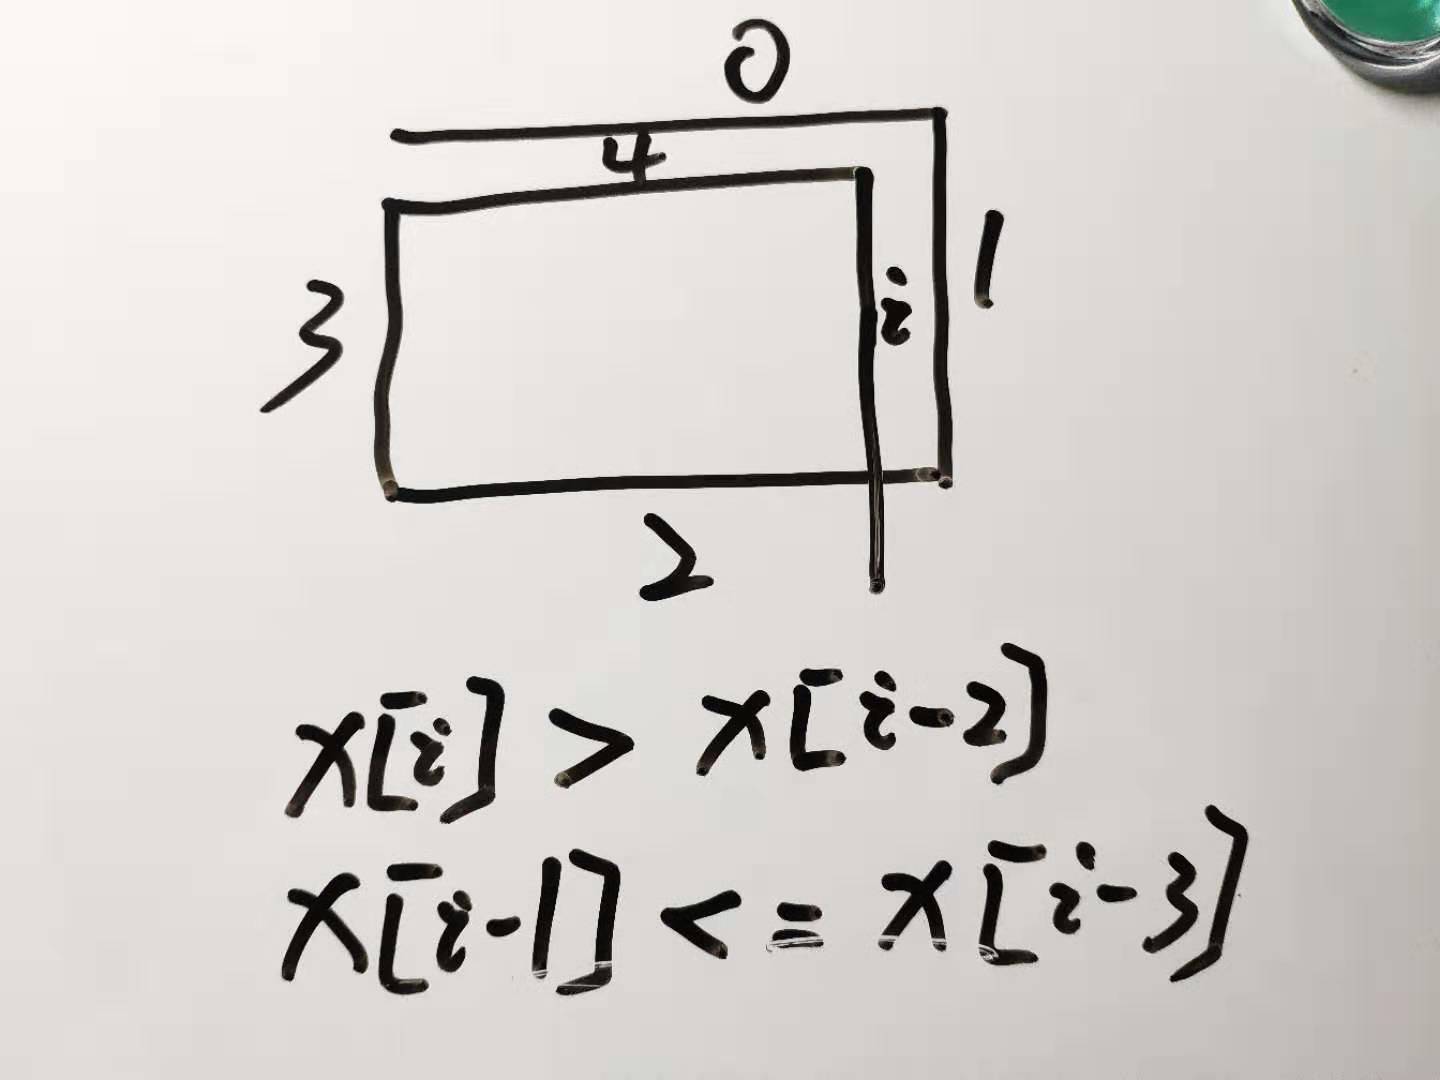 0
4
1
3
i
2
x[i] > x[i-2]
x[i-1] <= x[i-3]